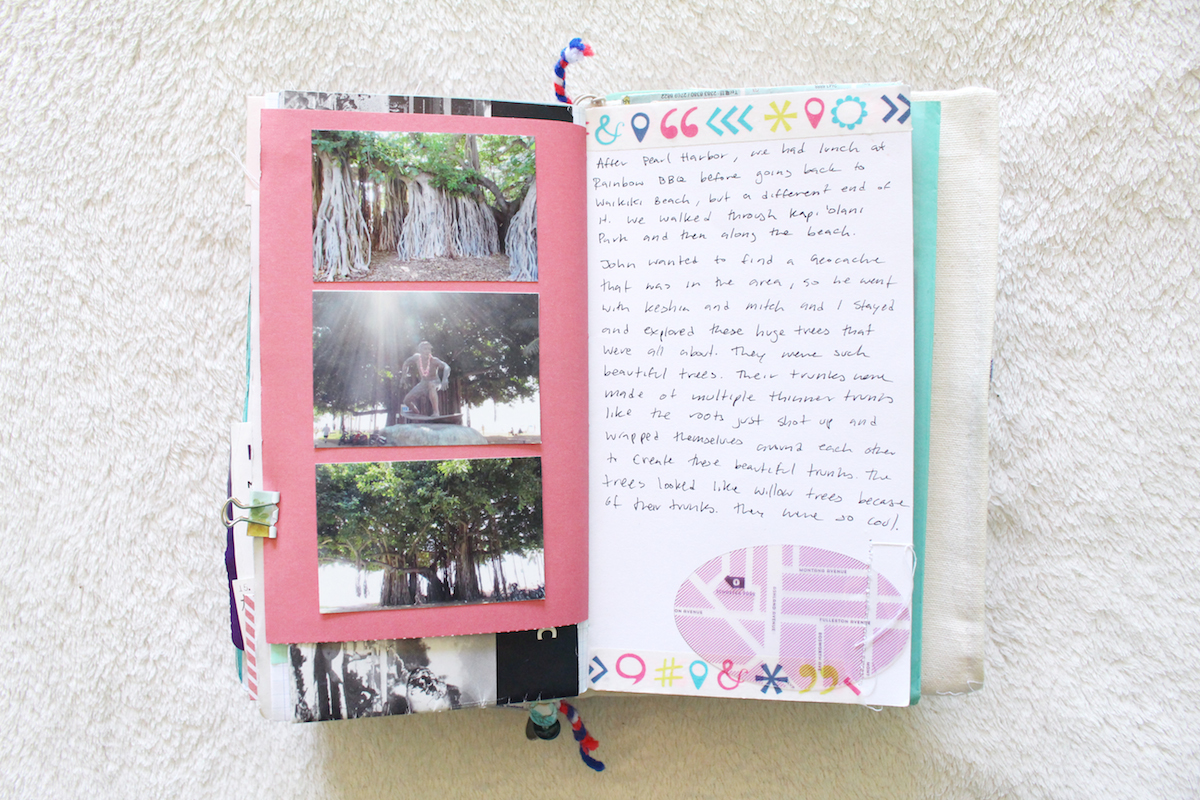 &
“
*
After Pearl Harbor, we had lunch at
Rainbow BBQ before going back to
Waikiki Beach, but a different end of
it. We walked through Kapi'olani
Park and then along the beach.
John wanted to find a Geocache
that was in the area, so he went
with Keshia and Mitch and I stayed
and explored these huge trees that
were all about. They were such
beautiful trees. Their trunks were
made of multiple thinner trunks
like the roots just shot up and
wrapped themselves around each other
to create these beautiful trunks. The
trees looked like willow trees because
of their trunks. They were so cool.
MONTANA AVENUE
ON AVENUE
TULLESTON AVENUE
#
&
*
”